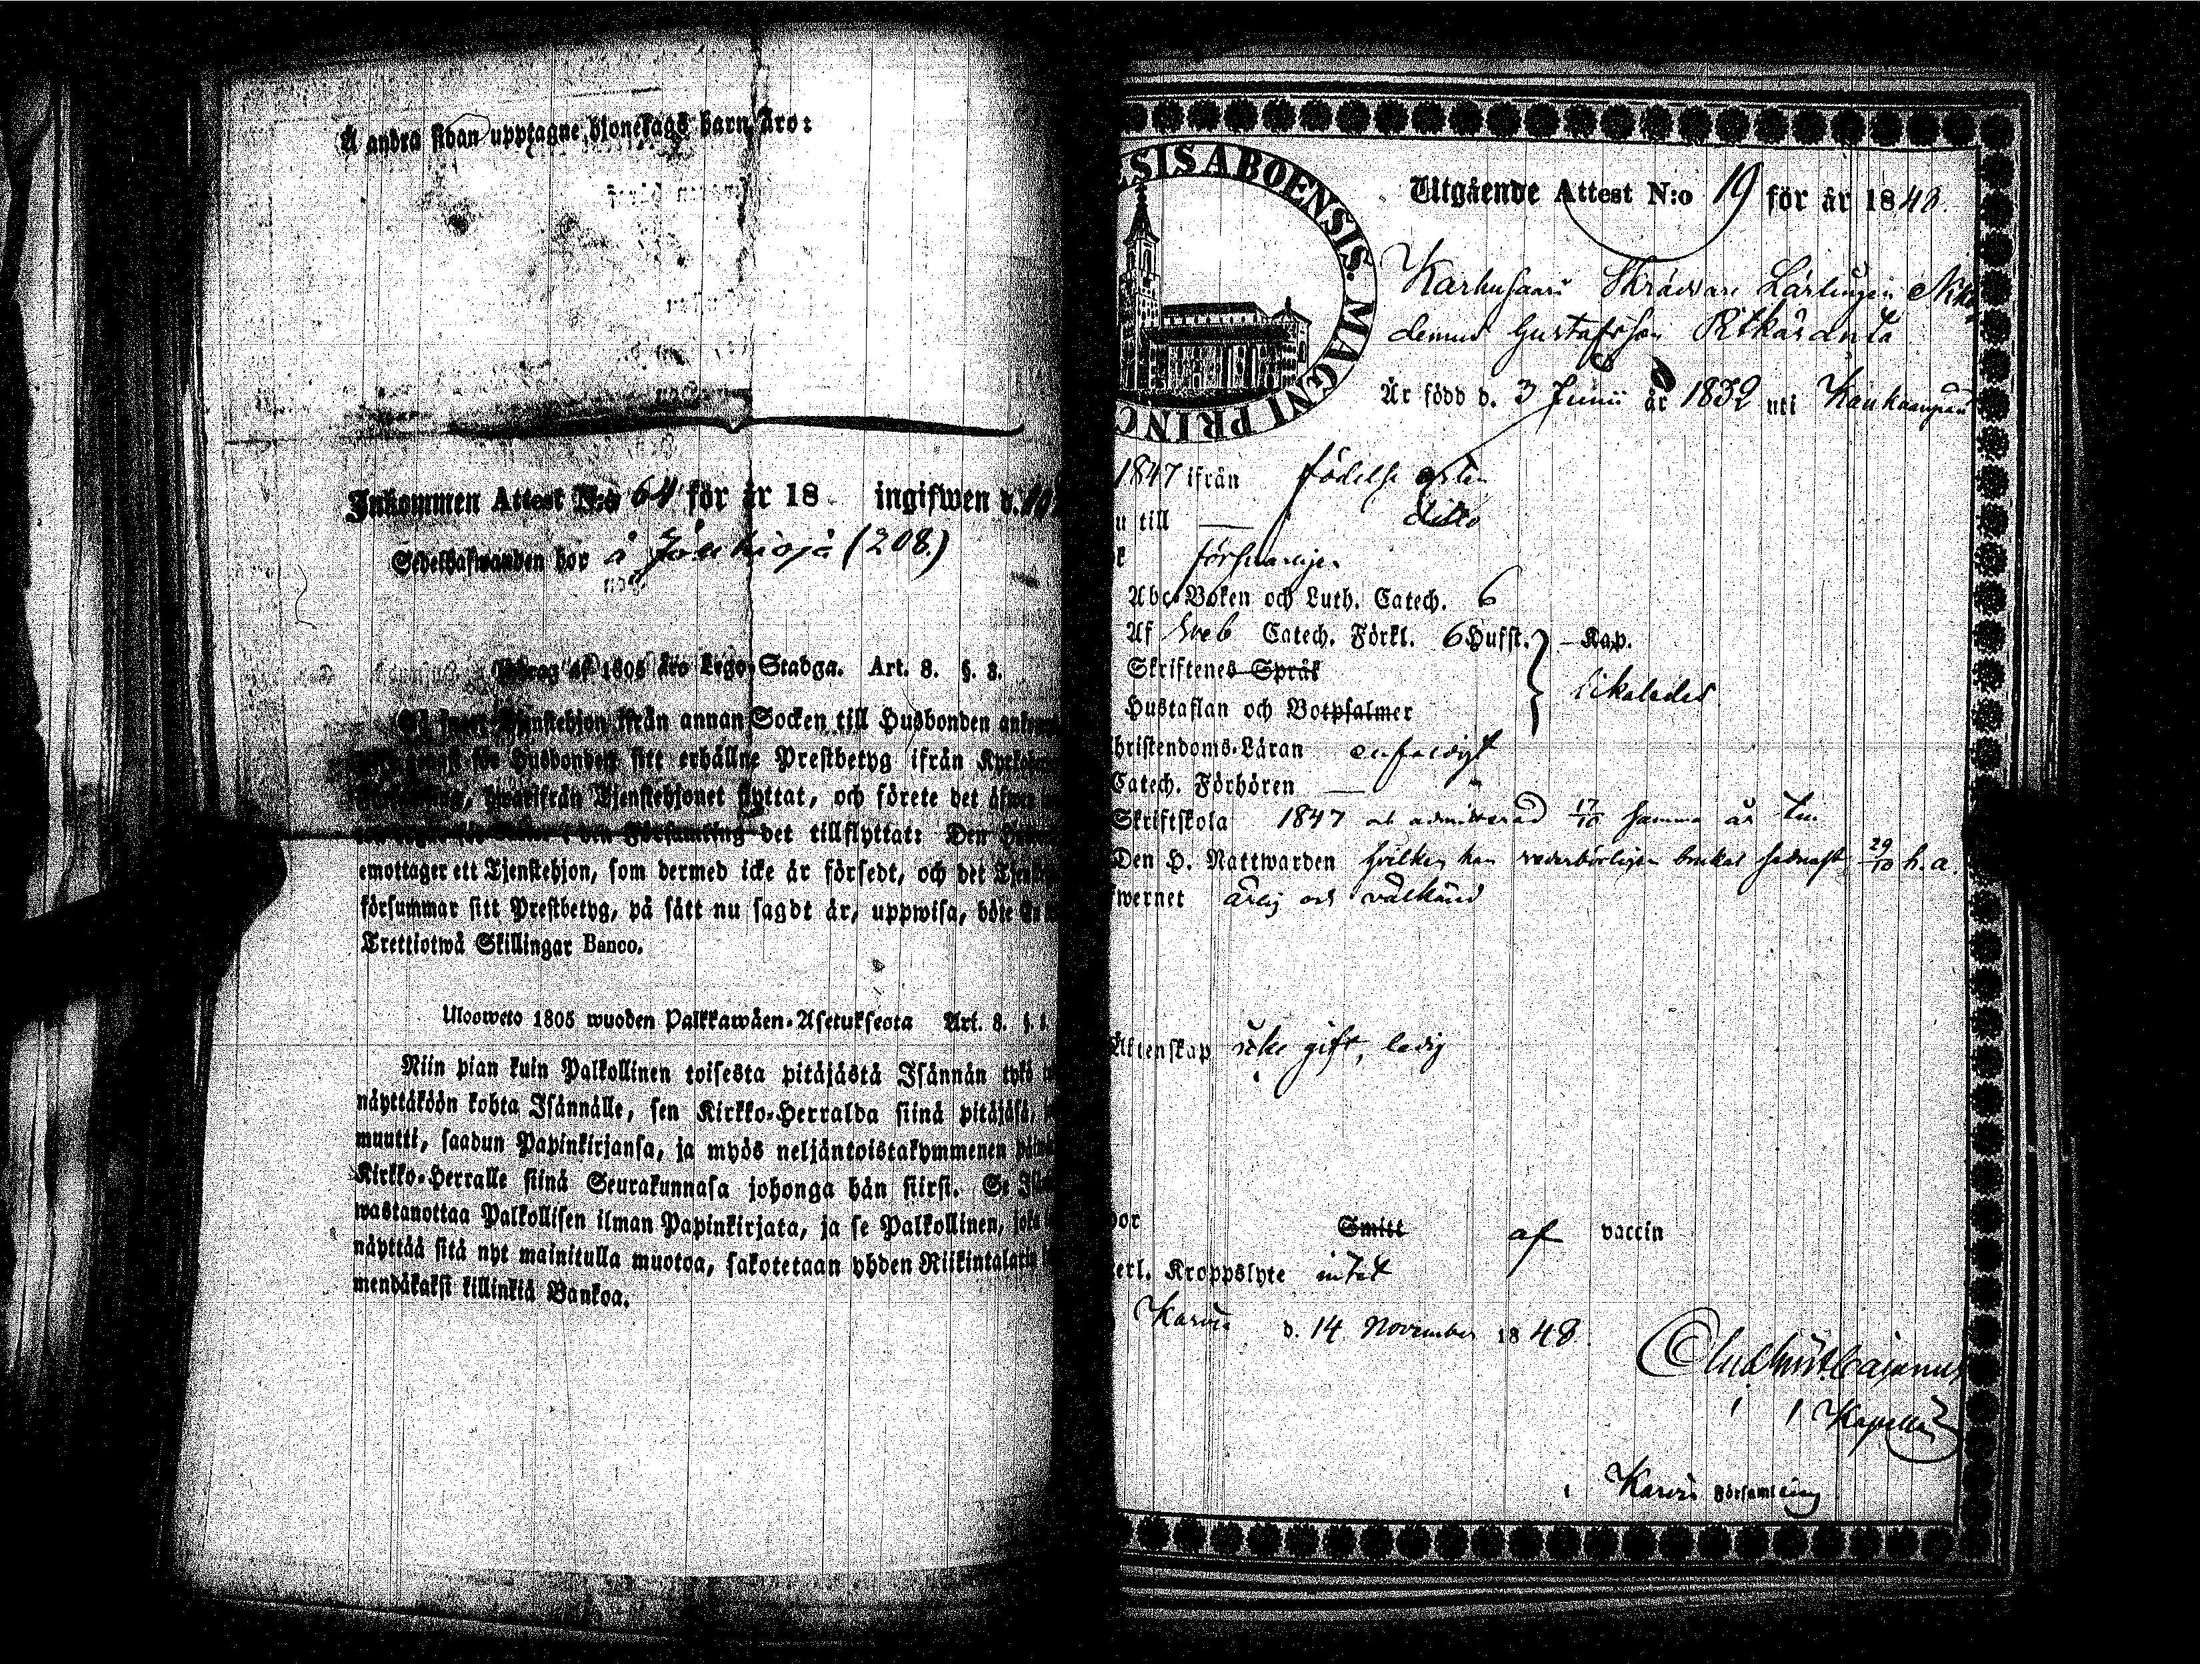 Å andra sidan upptagne hjonelags barn äro:
Inkommen Attest N:o 64 för år 18 ingifwen d.
Sedelhafwanden bor å Jåukisjå (208.)
1805 års Lego-Stadga. Art. 8. §. 8.
Tjenstehjon ifrån annan Socken till Husbonden
Husbonden sitt erhållne Prestbetyg ifrån
hwarifrån Tjenstehjonet flyttat, och förete det
i den Församling det tillflyttat: Den
emottager ett Tjenstehjon, som dermed icke är försedt, och det
försummar sitt Prestbetyg, på sätt nu sagdt är, uppwisa, böte
Trettiotwå Skillingar Banco.
Ulosweto 1805 wuoden Palkkawäen-Asetuksesta Art. 8. §.
Niin pian kuin Palkollinen toisesta pitäjästä Isännän tykö
näyttäköön kohta Isännälle, sen Kirkko-Herralda siinä pitäjäsä,
muutti, saadun Papinkirjansa, ja myös neljäntoistakymmenen
Kirkko-Herralle siinä Seurakunnasa johonga hän siirsi. Se
wastanottaa Palkollisen ilman Papinkirjata, ja se Palkollinen,
näyttää sitä nyt mainitulla muotoa, sakotetaan yhden Riikintalarin
mendäkaksi killinkiä Bankoa.
ESIS ABOENSIS. MAGNI PRINC
Utgående Attest N:o 19 för år 1848.
Karhusaari Skräddare Lärlingen Niko
demus Gustafsson Ritkäranta
Är född d. 3 Junii år 1832 uti Kankaanpää
1847 ifrån födelse orten
u till — ditto
försvarligen
Abc-Boken och Luth. Catech. 6
Af Sveb Catech. Förkl. 6 Hufst. — Kap.
Skriftenes Språk
likaledes
Hustaflan och Botpsalmer
hristendoms-Läran enfaldigt
Catech. Förhören —
Skriftskola 1847 och admitterad 17/10 samma år till
Den H. Nattwarden hvilken han vederbörligen brukat sednast 29/10 h. a.
fwernet ärlig och välkänd
Äktenskap icke gift, ledig
por Smitt af vaccin
erl. Kroppslyte intet
Karvia d. 14 November 1848.
Cajanus
Kapellan
i Karvia Församling